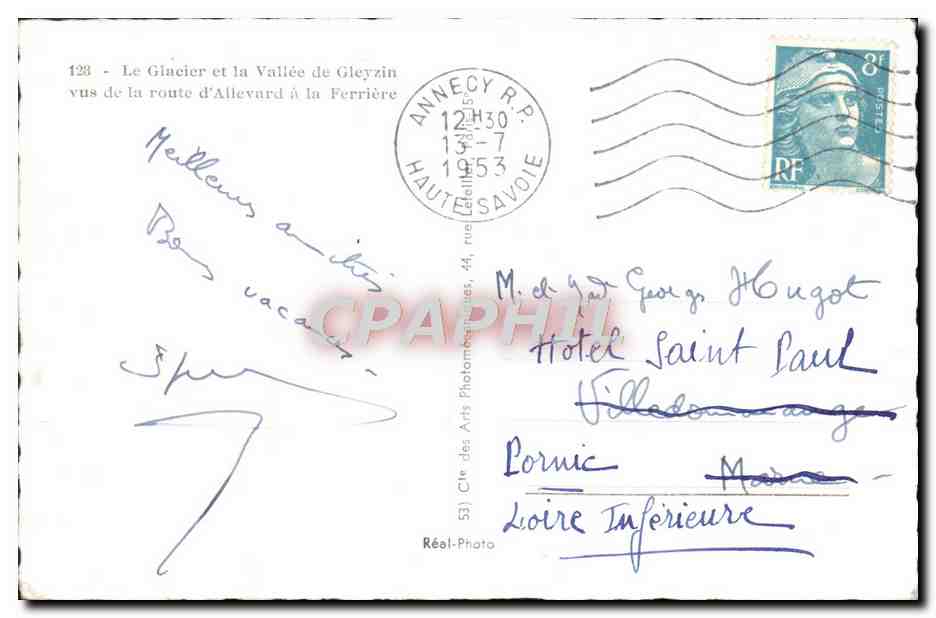 128 - Le Glacier et la Vallée de Gleyzin
vus de la route d'Allevard à la Ferrière
Meilleures amitiés
Bons vacances
ANNECY R.P.
12H30
13-7
1953
HAUTE-SAVOIE
8f
POSTES
RF
M. et Mad Georges Hugot
Hôtel Saint Paul
Villedommange
Marne
Pornic
Loire Inférieure
53) Cie des Arts Photomécaniques, 44, rue Letellier, Paris-15e
Réal-Photo
CPAPHIL